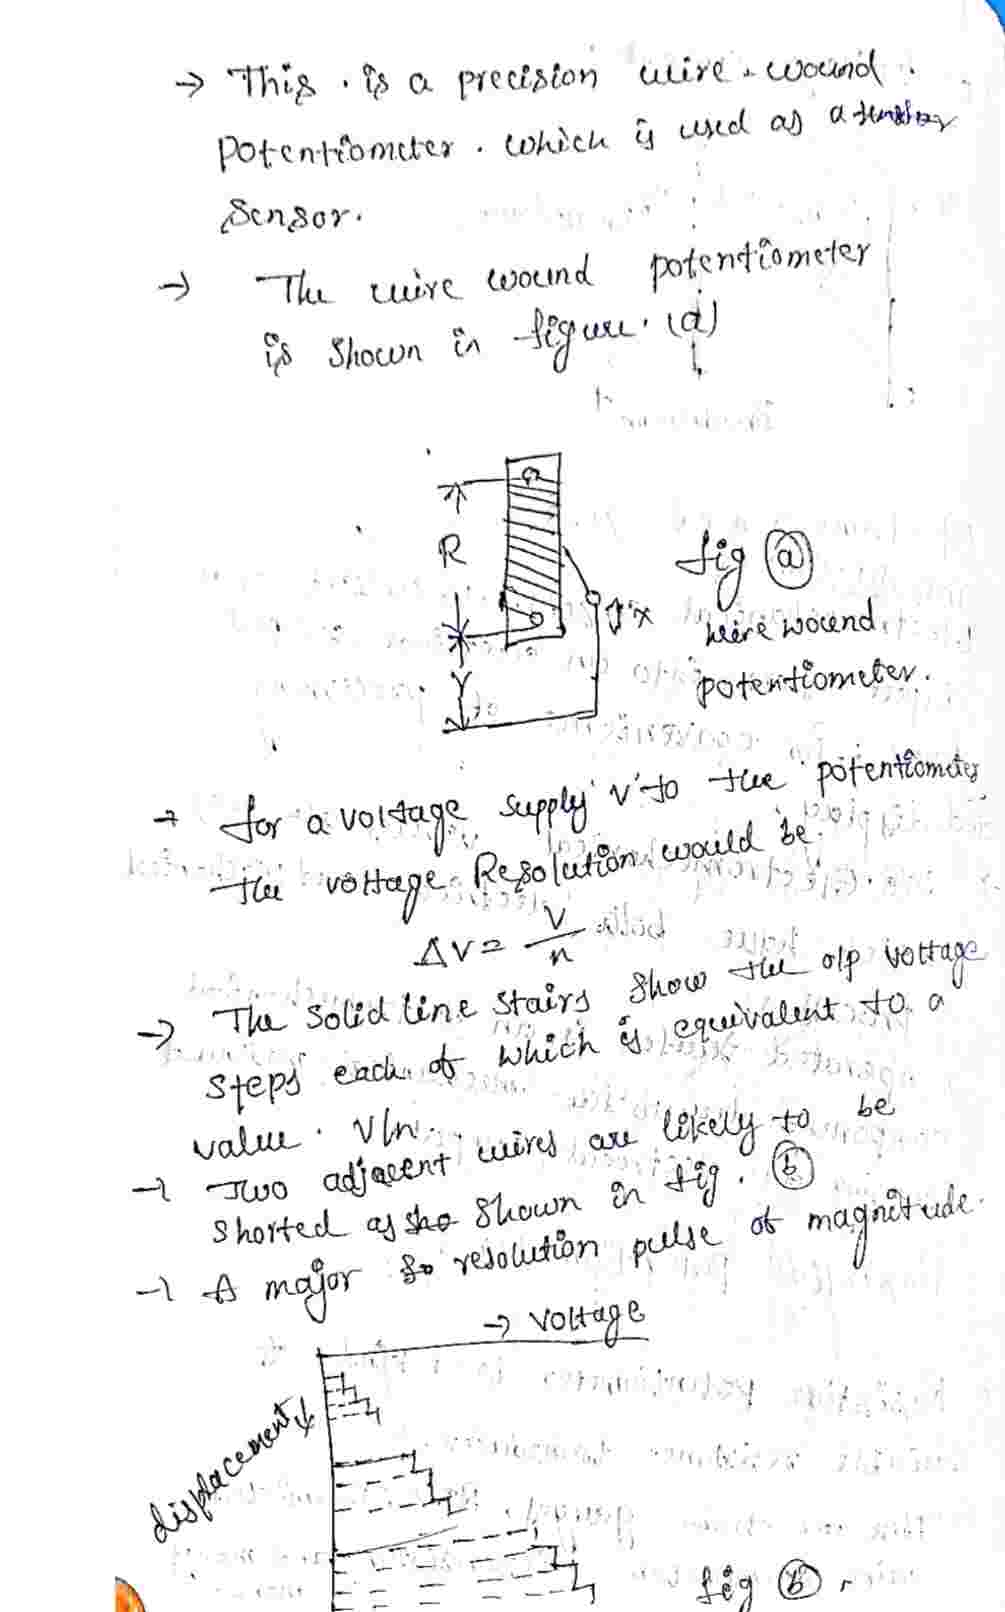 → This is a precision wire wound
Potentiometer. which is used as a
Sensor.
→ The wire wound potentiometer
is shown in figure. (a)
R
x
Y
fig (a)
wire wound
potentiometer.
→ for a voltage supply 'V' to the potentiometer
the voltage Resolution would be.
ΔV = V/n
→ The solid line stairs show the o/p voltage
steps each of which is equivalent to a
value. V/n.
→ Two adjacent wires are likely to be
shorted as shown in fig. (b)
→ A major resolution pulse of magnitude.
→ voltage
displacement
fig (b).